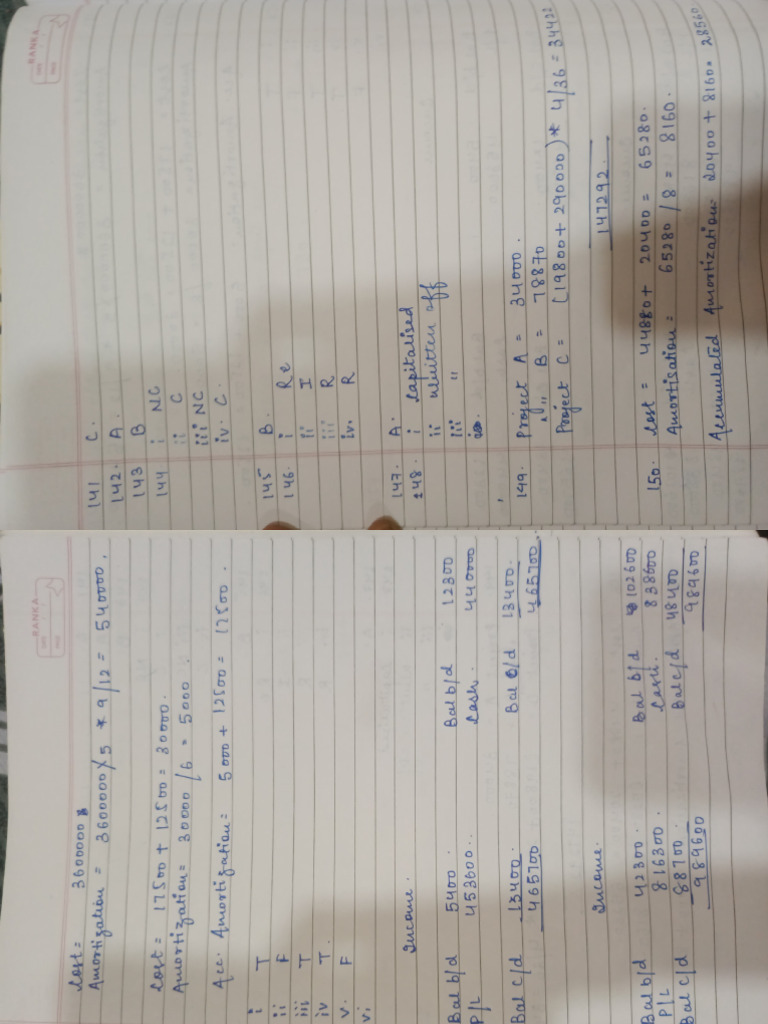 RANKA
141 C.
142. A.
143 B
144 i NC
ii C
iii NC
iv. C.
145 B.
146. i Re
ii I
iii R
iv. R
147. A.
148. i capitalised
ii written off
iii "
149. Project A = 34000.
" B = 78870
Project C = (19800 + 290000) * 4/36 = 34422
147292.
150. Cost = 44880 + 20400 = 65280.
Amortisation = 65280 / 8 = 8160.
Accumulated Amortization = 20400 + 8160 = 28560
RANKA
Cost = 3600000
Amortization = 3600000/5 * 9/12 = 540000.
Cost = 17500 + 12500 = 30000.
Amortization = 30000 / 6 = 5000.
Acc. Amortization = 5000 + 12500 = 17500.
i T
ii F
iii T
iv T.
v. F
vi
Income.
Bal b/d 5400. Bal b/d 12300
P/L 453600.. Cash. 440000
Bal c/d 13400. Bal c/d 13400.
465700 465700.
Income.
Bal b/d 42300. Bal b/d 102600
P/L 816300. Cash. 838600
Bal c/d 88700. Bal c/d 48400
989600 989600